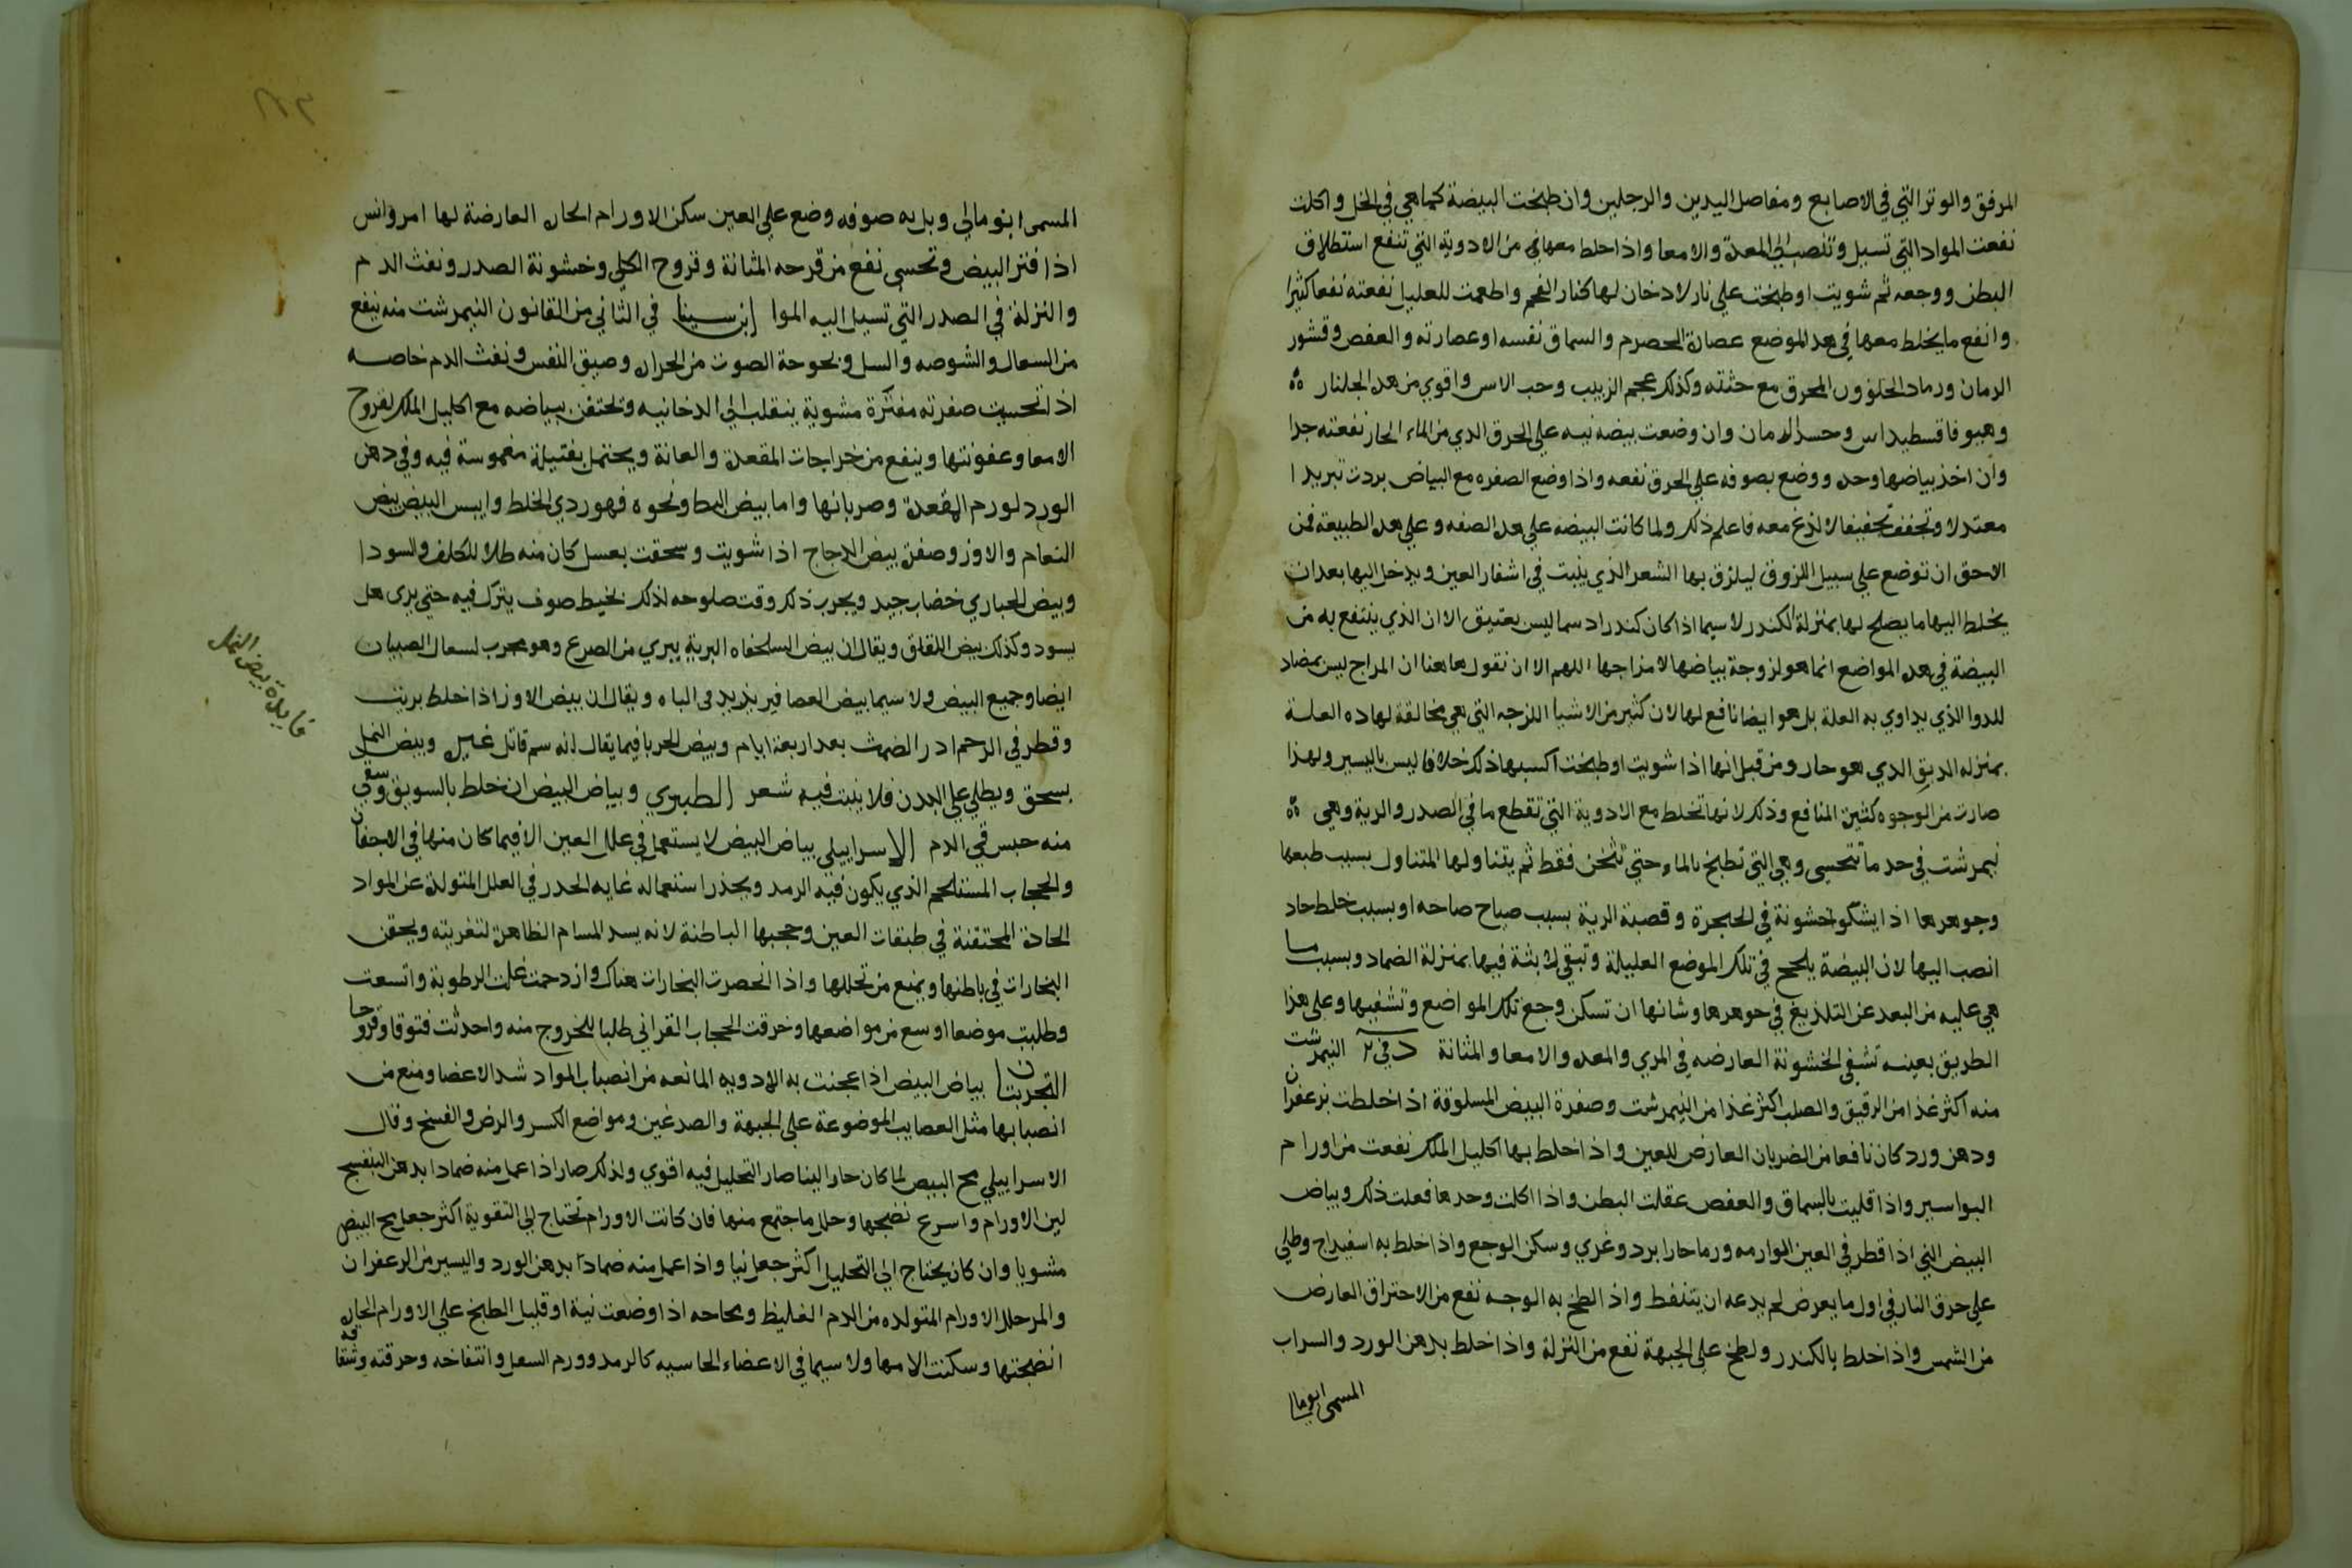 المرفق والوتر التي في الاصابع ومفاصل اليدين والرجلين وان طبخت البيضة كما هي في الخل واكلت
نفعت المواد التي تسيل وتنصب الى المعدة والامعا واذا خلط معها في من الادوية التي تنفع استطلاق
البطن ووجعه ثم شويت او طبخت على نار لا دخان لها كنار الفحم واطعمت للعليل نفعته نفعا كثيرا
وانفع ما يخلط معها في هذا الموضع عصارة الحصرم والسماق نفسه او عصارته والعفص وقشور
الرمان ورماد الحلزون المحرق مع جثته وكذلك عجم الزبيب وحب الاس واقوي من هذه الجلنار
وهيوفاقسطيداس وان وضعت بيضه نيه علي الحرق الذي من الماء الحار نفعته جدا
وان اخذ بياضها وحده ووضع بصوفه علي الحرق نفعه واذا وضع الصفره مع البياض بردت تبريدا
معتدلا وتجفف تجفيفا لا لذع معه فاعلم ذلك ولما كانت البيضه علي هذه الصفه وعلي هذه الطبيعة فمن
الاحق ان توضع علي سبيل اللزوق ليلزق بها الشعر الذي ينبت في اشفار العين ويدخل اليها بعد ان
يخلط اليها ما يصلح لها بمنزلة الكندر لا سيما اذا كان كندرا دسما ليس بعتيق الا ان الذي ينتفع به من
البيضة في هذه المواضع انما هو لزوجة بياضها لا مزاجها اللهم الا ان نقول هاهنا ان المزاج ليس بمضاد
للدوا الذي يداوي به العلة بل هو ايضا نافع لها لان كثير من الاشيا اللزجه التي هي مخالفة لهاده العلة
بمنزله الدبق الذي هو حار ومن قبل انها اذا شويت او طبخت اكسبها ذلك خلافا ليس باليسير ولهذا
صارت من الوجوه كثيرة المنافع وذلك لانها تخلط مع الادوية التي تقطع ما في الصدر والرية وهي
نيمرشت في حد ما تتحسى وهي التي تطبخ بالماء حتي تثخن فقط ثم يتناولها المتناول بسبب طبعها
وجوهرها اذا يشكوا خشونة في الحنجرة وقصبة الرية بسبب صياح صاحه او بسبب خلط حاد
انصب اليها لان البيضة يلحج في تلك الموضع العليلة وتبقي لابثة فيها بمنزلة الضماد وبسبب ما
هي عليه من البعد عن التلذيع في جوهرها وشانها ان تسكن وجع تلك المواضع وتشفيها وعلي هذا
الطريق بعينه تشفي الخشونة العارضه في المري والمعده والامعا والمثانة د في ٢ النيمرشت
منه اكثر غذا من الرقيق والصلب اكثر غذا من النيمرشت وصفرة البيض المسلوقة اذا خلطت بزعفران
ودهن ورد كان نافعا من الضربان العارض للعين واذا خلط بها اكليل الملك نفعت من اورام
البواسير واذا قليت بالسماق والعفص عقلت البطن واذا اكلت وحدها فعلت ذلك وبياض
البيض الني اذا قطر في العين الوارمه ورما حارا برد وغري وسكن الوجع واذا خلط به اسفيداج وطلي
علي حرق النار في اول ما يعرض لم يدعه ان يتنفط واذا لطخ به الوجه نفع من الاحتراق العارض
من الشمس واذا خلط بالكندر ولطخ علي الجبهة نفع من النزلة واذا خلط بدهن الورد والسراب
المسمى ابوما
المسمى ابنومالي وبل به صوفه وضع علي العين سكن الاورام الحاره العارضة لها امرواس
اذا فتر البيض وتحسي نفع من قرحه المثانة وقروح الكلي وخشونة الصدر ونفث الدم
والنزلة في الصدر التي تسيل اليه الموا ابن سينا في الثاني من القانون النيمرشت منه ينفع
من السعال والشوصه والسل وبحوحة الصوت من الحراره وضيق النفس ونفث الدم خاصه
اذا تحسيت صفرته مفترة مشوية ينقلب الي الدخانيه وتحتقن ببياضه مع اكليل الملك لقروح
الامعا وعفونتها وينفع من خراجات المقعدة والعانة ويحتمل بفتيلة مغموسة فيه وفي دهن
الورد لورم المقعدة وضربانها واما بيض البط ونحوه فهو ردي الخلط وايبس البيض بيض
النعام والاوز وصفرة بيض الدجاج اذا شويت وسحقت بعسل كان منه طلا للكلف والسودا
وبيض الحباري خضاب جيد ويجرب ذلك وقت صلوحه لذلك بخيط صوف يترك فيه حتي يري هل
يسود وكذلك بيض اللقلق ويقال ان بيض السلحفاه البرية يبري من الصرع وهو مجرب لسعال الصبيان
ايضا وجميع البيض ولا سيما بيض العصافير يزيد في الباه ويقال ان بيض الاوز اذا خلط بزيت
وقطر في الرحم ادر الطمث بعد اربعة ايام وبيض الحربا فيما يقال انه سم قاتل غيره وبيض النمل
يسحق ويطلي علي البدن فلا ينبت فيه شعر الطبري وبياض البيض ان خلط بالسويق وسقي
منه حبس قي الدم الاسراييلي بياض البيض لا يستعمل في علل العين الا فيما كان منها في الاجفان
والحجاب المستلحم الذي يكون فيه الرمد ويحذر استعماله غايه الحذر في العلل المتولدة عن المواد
الحادة المحتقنة في طبقات العين وحجبها الباطنة لانه يسد المسام الظاهرة لتغريته ويحقن
البخارات في باطنها ويمنع من تحللها واذا انحصرت البخارات هناك وازدحمت غلت الرطوبة واتسعت
وطلبت موضعا اوسع من مواضعها وخرقت الحجاب القراني طلبا للخروج منه واحدثت فتوقا وقروحا
التجربتان بياض البيض اذا عجنت به الادويه المانعه من انصباب المواد شد الاعضا ومنع من
انصبابها مثل العصايب الموضوعة علي الجبهة والصدغين ومواضع الكسر والرض والفسخ وقال
الاسراييلي مح البيض لما كان حارا لينا صار التحليل فيه اقوي ولذلك صار اذا عمل منه ضمادا بدهن البنفسج
لين الاورام واسرع نضجها وحلل ما جتمع منها فان كانت الاورام تحتاج الي التقوية اكثر جعل مح البيض
مشويا وان كان يحتاج الي التحليل اكثر جعل نيا واذا عمل منه ضمادا بدهن الورد واليسير من الزعفران
والمر حلل الاورام المتولده من الدم الغليظ ومحاحه اذا وضعت نية او قليل الطبخ علي الاورام الحاره
انضجتها وسكنت الامها ولا سيما في الاعضاء الحاسيه كالرمد وورم السفل وانتفاخه وحرقته وشقاقه
فايدة بيض النمل